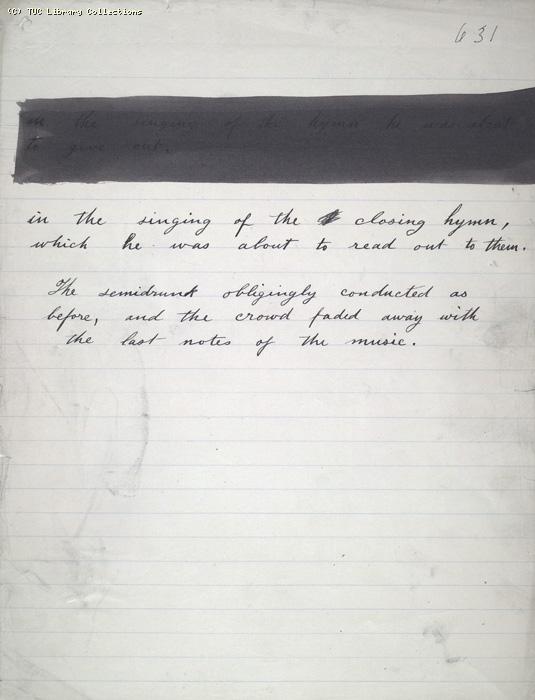 (C) TUC Library Collections
631
in the singing of the hymn he was about
to give out.
in the singing of the closing hymn,
which he was about to read out to them.
The semidrunk obligingly conducted as
before, and the crowd faded away with
the last notes of the music.